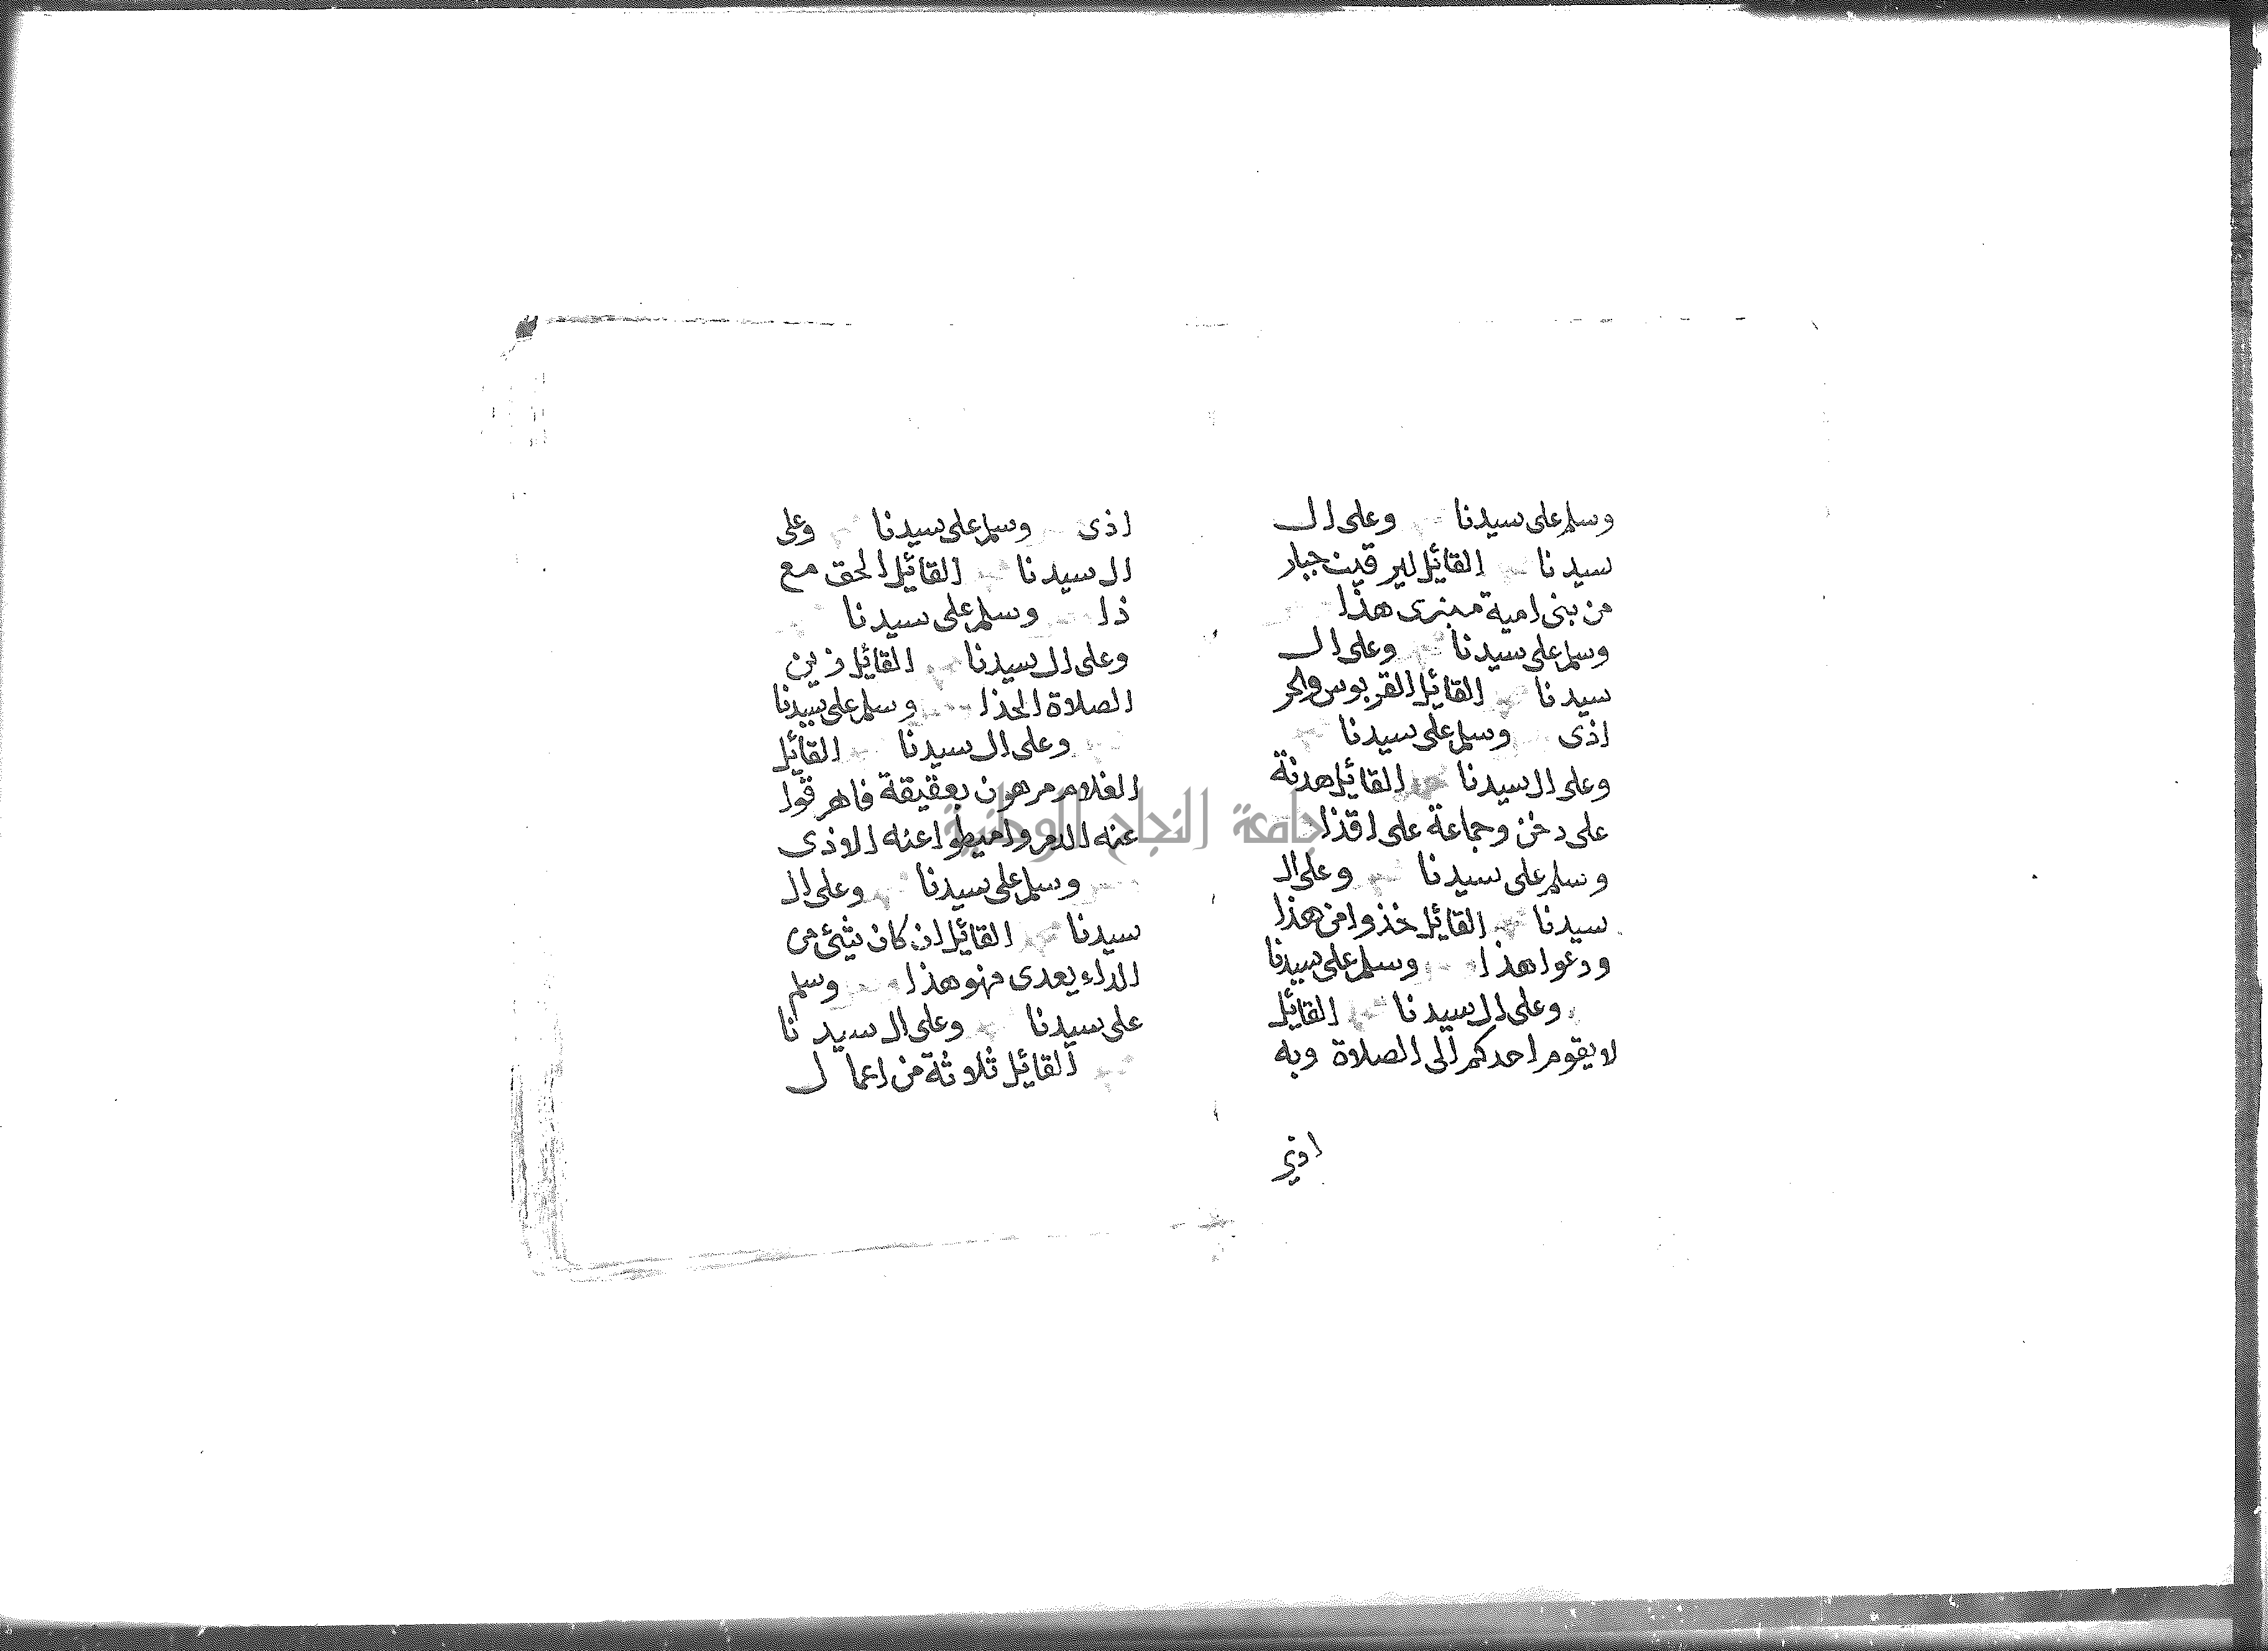 وسلم على سيدنا وعلى ال
سيدنا القائل ليرقين جبار
من بنى امية منبرى هذا
وسلم على سيدنا وعلى ال
سيدنا القائل القربوس والحر
اذى وسلم على سيدنا
وعلى ال سيدنا القائل هدنة
على دخن وجماعة على اقذا
وسلم على سيدنا وعلى ال
سيدنا القائل خذوا من هذا
ودعوا هذا وسلم على سيدنا
وعلى ال سيدنا القائل
لا يقوم احدكم الى الصلاة وبه
اذى
اذى وسلم على سيدنا وعلى
ال سيدنا القائل الحق مع
ذا وسلم على سيدنا
وعلى ال سيدنا القائل زين
الصلاة الحذا وسلم على سيدنا
وعلى ال سيدنا القائل
الغلام مرهون بعقيقة فاهرقوا
عنه الدم واميطوا عنه الاذى
وسلم على سيدنا وعلى ال
سيدنا القائل ان كان شئ من
الداء يعدى فهو هذا وسلم
على سيدنا وعلى ال سيدنا
القائل ثلاثة من اعمال
جامعة النجاح الوطنية